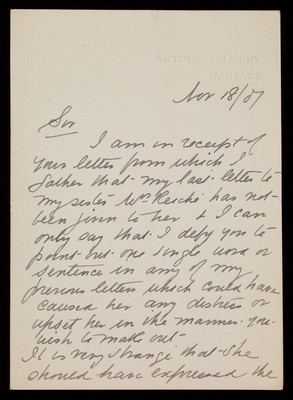 Nov 18/07
Sir
I am in receipt of
your letter from which I
gather that my last letter to
my sister Mrs. Reiche has not
been given to her & I can
only say that I defy you to
point out one single word or
sentence in any of my
previous letters which could have
caused her any distress or
upset her in the manner you
wish to make out -
It is very strange that she
should have expressed the